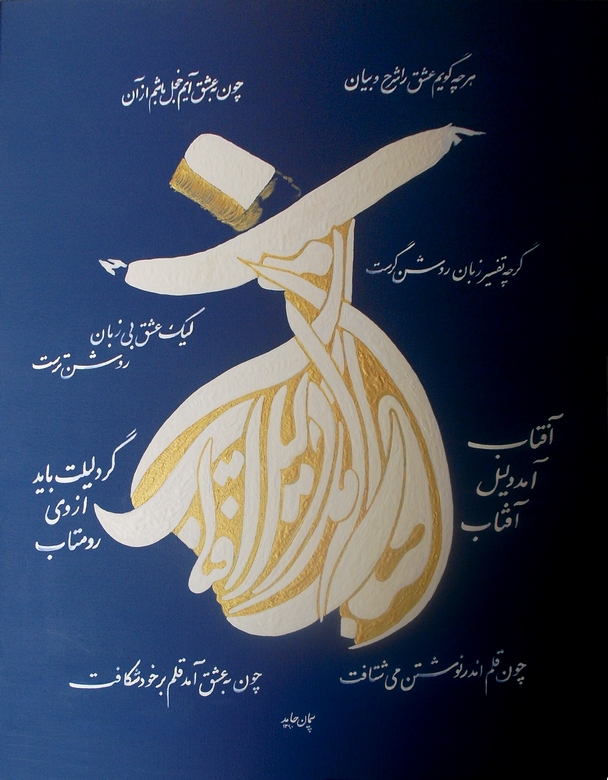 هرچه گویم عشق را شرح و بیان
چون به عشق آیم خجل باشم از آن
گرچه تفسیر زبان روشن گرست
لیک عشق بی زبان
روشن ترست
آفتاب آمد دلیل آفتاب
آفتاب
آمد دلیل
آفتاب
گر دلیلت باید
از وی
رو متاب
چون قلم اندر نوشتن می شتافت
چون به عشق آمد قلم بر خود شکافت
پیمان حامد